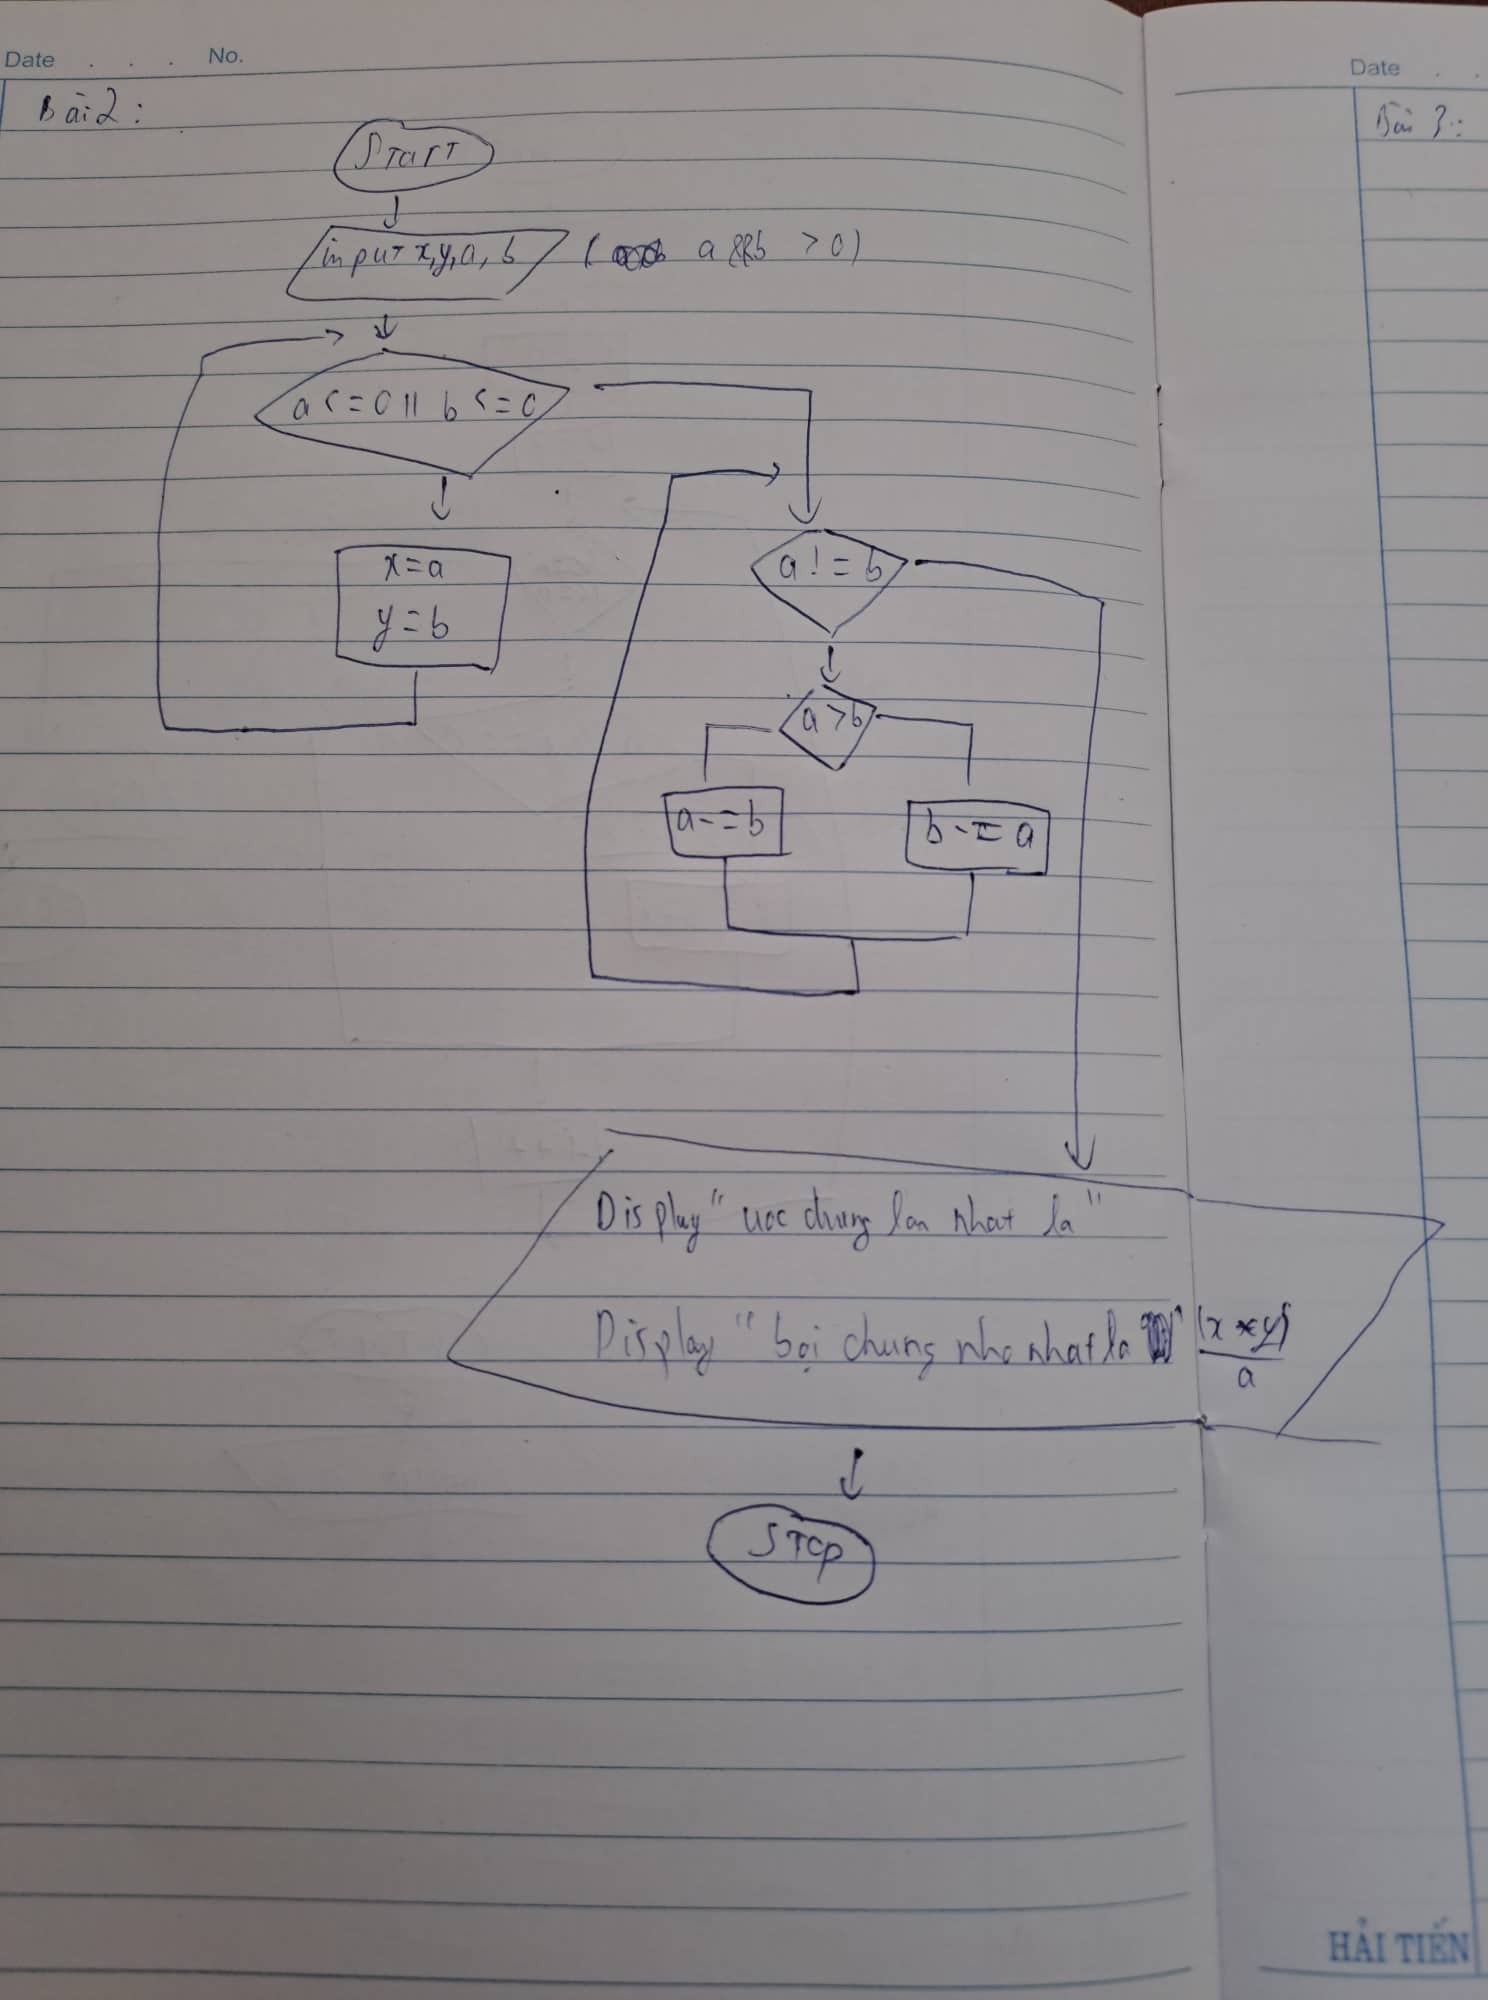 Date . . . No.
Date . .
Bài 2 :
Bài 3 :
START
input x,y,a, b ( a && b > 0)
a <= 0 || b <= 0
x = a
y = b
a != b
a > b
a -= b
b -= a
Display " uoc chung lon nhat la "
Display " bọi chung nho nhat la " (x * y)
a
STOP
HẢI TIẾN